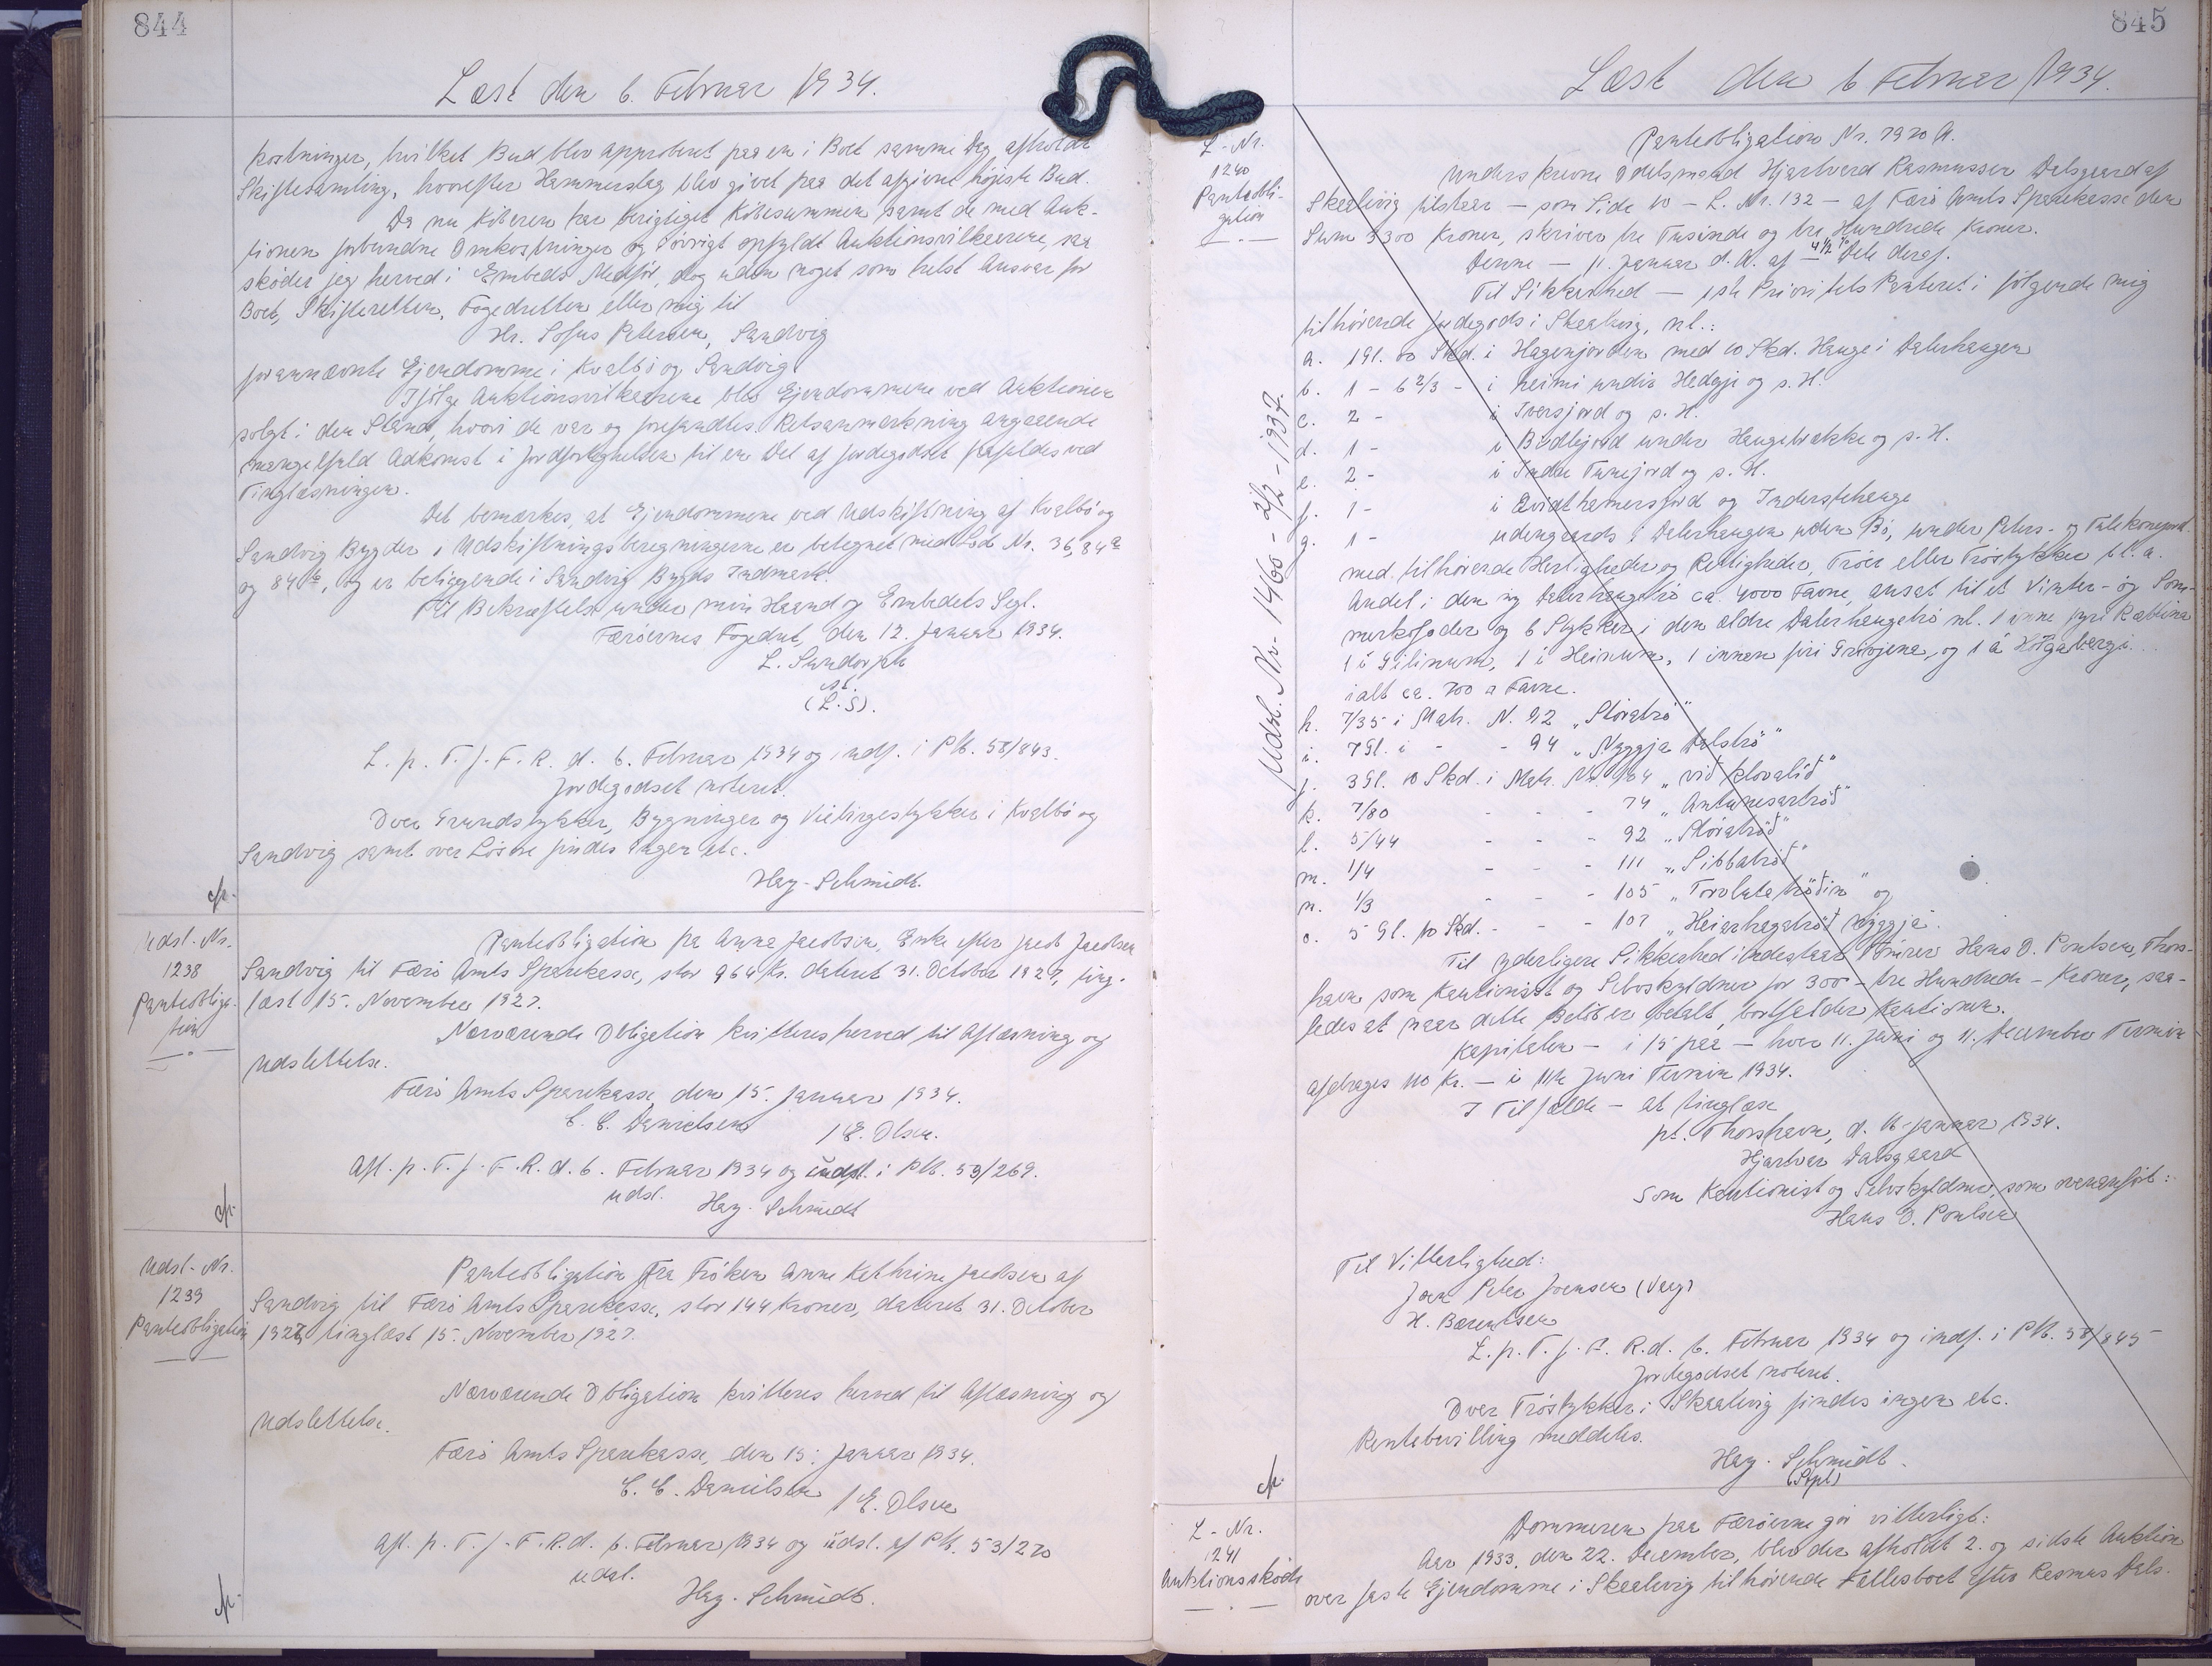 844
Læst den 6. Februar 1934.
kostninger, hvilket Bud blev approberet paa en i Boet samme Dag afholdt
Skiftesamling, hvorefter Hammerslag blev givet paa det afgivne højeste Bud.
Da nu Köberen har berigtiget Köbesummen samt de med Auk-
tionen forbundne Omkostninger og iövrigt opfyldt Auktionsvilkaarene, saa
sköder jeg herved i Embeds Medför, dog uden noget som helst Ansvar for
Boet, Skifteretten, Fogedretten eller mig til
Hr. Sofus Petersen, Sandvig
forannævnte Ejendomme i Kvalbö og Sandvig.
Ifölge Auktionsvilkaarene blev Ejendommene ved Auktionen
solgt i den Stand, hvori de var og forefandtes. Retsanmerkning angaaende
mangelfuld Adkomst i Jordforligheden til en Del af Jordegodset frafaldes ved
Tinglæsningen.
Det bemærkes, at Ejendommene ved Udskiftning af Kvalbö og
Sandvig Bygder i Udskiftningsberegningerne er betegnet med Lod Nr. 36, 84a
og 84b, og er beliggende i Sandvig Bygds Indmark.
Til Bekræftelse under min Haand og Embedets Segl.
Færöernes Fogedret, den 12. Januar 1934.
L. Sundorph
st.
(L.S).
L. p. T. f. F. R. d. 6. Februar 1934 og indf. i PB. 58/843.
Jordegodset noteret.
Over Grundstykker, Bygninger og Veltingestykker i Kvalbö og
Sandvig samt over Lösöre findes ingen etc.
Hey-Schmidt.
Udsl.-Nr.
1238
Panteobliga-
tion
Panteobligation fra Anna Jacobsen, Enke efter Jacob Jacobsen
Sandvig til Færö Amts Sparekasse, stor 964 Kr. dateret 31. October 1927, ting-
læst 15. November 1927.
Nærværende Obligation kvitteres herved til Aflæsning og
Udslettelse.
Færö Amts Sparekasse, den 15. Januar 1934.
C. C. Danielsen / E. Olsen.
Afl. p. T. f. F. R. d. 6. Februar 1934 og udsl. i PB. 53/269.
udsl.
Hey-Schmidt
Udsl.-Nr.
1239
Panteobligation
Panteobligation fra Fröken Anne Kathrine Jacobsen af
Sandvig til Færö Amts Sparekasse, stor 144 Kroner, dateret 31. October
1927, tinglæst 15. November 1927.
Nærværende Obligation kvitteres herved til Aflæsning og
Udslettelse.
Færö Amts Sparekasse, den 15. Januar 1934.
C. C. Danielsen / E. Olsen
Afl. p. T. f. F. R. d. 6. Februar 1934 og udsl. af PB. 53/270
udsl.
Hey-Schmidt.
845
Læst den 6 Februar 1934.
L-Nr.
1240
Panteobli-
gation
Udsl. Nr. 1460 - 2/2 - 1937.
Panteobligation Nr. 7920 A.
Underskrevne Odelsmand Hjartvard Rasmussen Dalsgaard af
Skaalevig tilstaar — som Side 10 — L. Nr. 132 — af Færö Amts Sparekasse den
Sum 3300 Kroner, skriver tre Tusinde og tre Hundrede Kroner.
Denne — 11. Januar d. A. af — 4 1/2 % Dele deraf.
Til Sikkerhed — 1ste Prioritets Panteret i fölgende mig
tilhörende Jordegods i Skaalevig, nl.:
a. 1 Gl. 10 Skd. i Hagenjorden med 10 Skd. Hauge i Dalerhaugen
b. 1 - 6 2/3 - i heimi undir Heðgji og s. H.
c. 2 - i Iversjord og s. H.
d. 1 - i Bødlijord under Haugebakke og s. H.
e. 2 - i Indre Tunejord og s. H.
f. 1 - i Qvidthamersjord og Inderstehauge
g. 1 - udengaards i Dalerhaugen uden Bö, under Peters- og Falekonejord
med tilhörende Herligheder og Rettigheder, Tröer eller Tröstykker bl. a.
Andel i den ny Dalerhaugetrö ca. 4000 Favne, ansat til et Vinter- og Som-
merkofoder og 6 Stykker i den ældre Dalerhaugetrö nl. 1 inne fyri Rættina
1 i Gilinum, 1 i Heinum, 1 innan firi Gröojena, og 1 á Högabergi.
ialt ca. 700 a Favne.
h. 7/35 i Matr. N. 92 „Störatrö"
i. 7 Gl. i - - 94 „Nyggja Dalströ"
j. 3 Gl. 10 Skd. i Matr. Nr. 164 „við Klovalið"
k. 7/80 - - - 74 „Antunesartröð"
l. 5/44 - - - 92 „Störatröð"
m. 1/4 - - - 111 „Sibbatröð"
n. 1/3 - - - 105 „Torvluta tröðin" og
o. 5 Gl. 10 Skd. - - - 107 „Heiarhagatröð nýggja".
Til yderligere Sikkerhed indestaar Tömrer Hans D. Poulsen, Thors-
havn som Kautionist og Selvskyldner for 300 - tre Hundrede - Kroner, saa-
ledes at naar dette Belöb er betalt, bortfalder Kautionen.
Kapitalen — i 15 paa — hver 11. Juni og 11. December Termin
afdrages 110 Kr. — i 11te Juni Termin 1934.
I Tilfælde — at tinglæse
pt. Thorshavn, d. 16. Januar 1934.
Hjartvar Dalsgaard
Som Kautionist og Selvskyldner, som ovenanfört:
Hans D. Poulsen
Til Vitterlighed:
Joen Peter Joensen (Vaag)
H. Bærentsen
L. p. T. f. F. R. d. 6. Februar 1934 og indf. i PB. 58/845
Jordegodset noteret.
Over Tröstykker i Skaalevig findes ingen etc.
Rentebevilling meddeles.
Hey-Schmidt
(Stpl)
L-Nr.
1241
Auktionsskøde
Dommeren paa Færöerne gör vitterligt:
Aar 1933, den 22. December, blev der afholdt 2. og sidste Auktion
over faste Ejendomme i Skaalevig tilhörende Fællesboet efter Rasmus Dals-